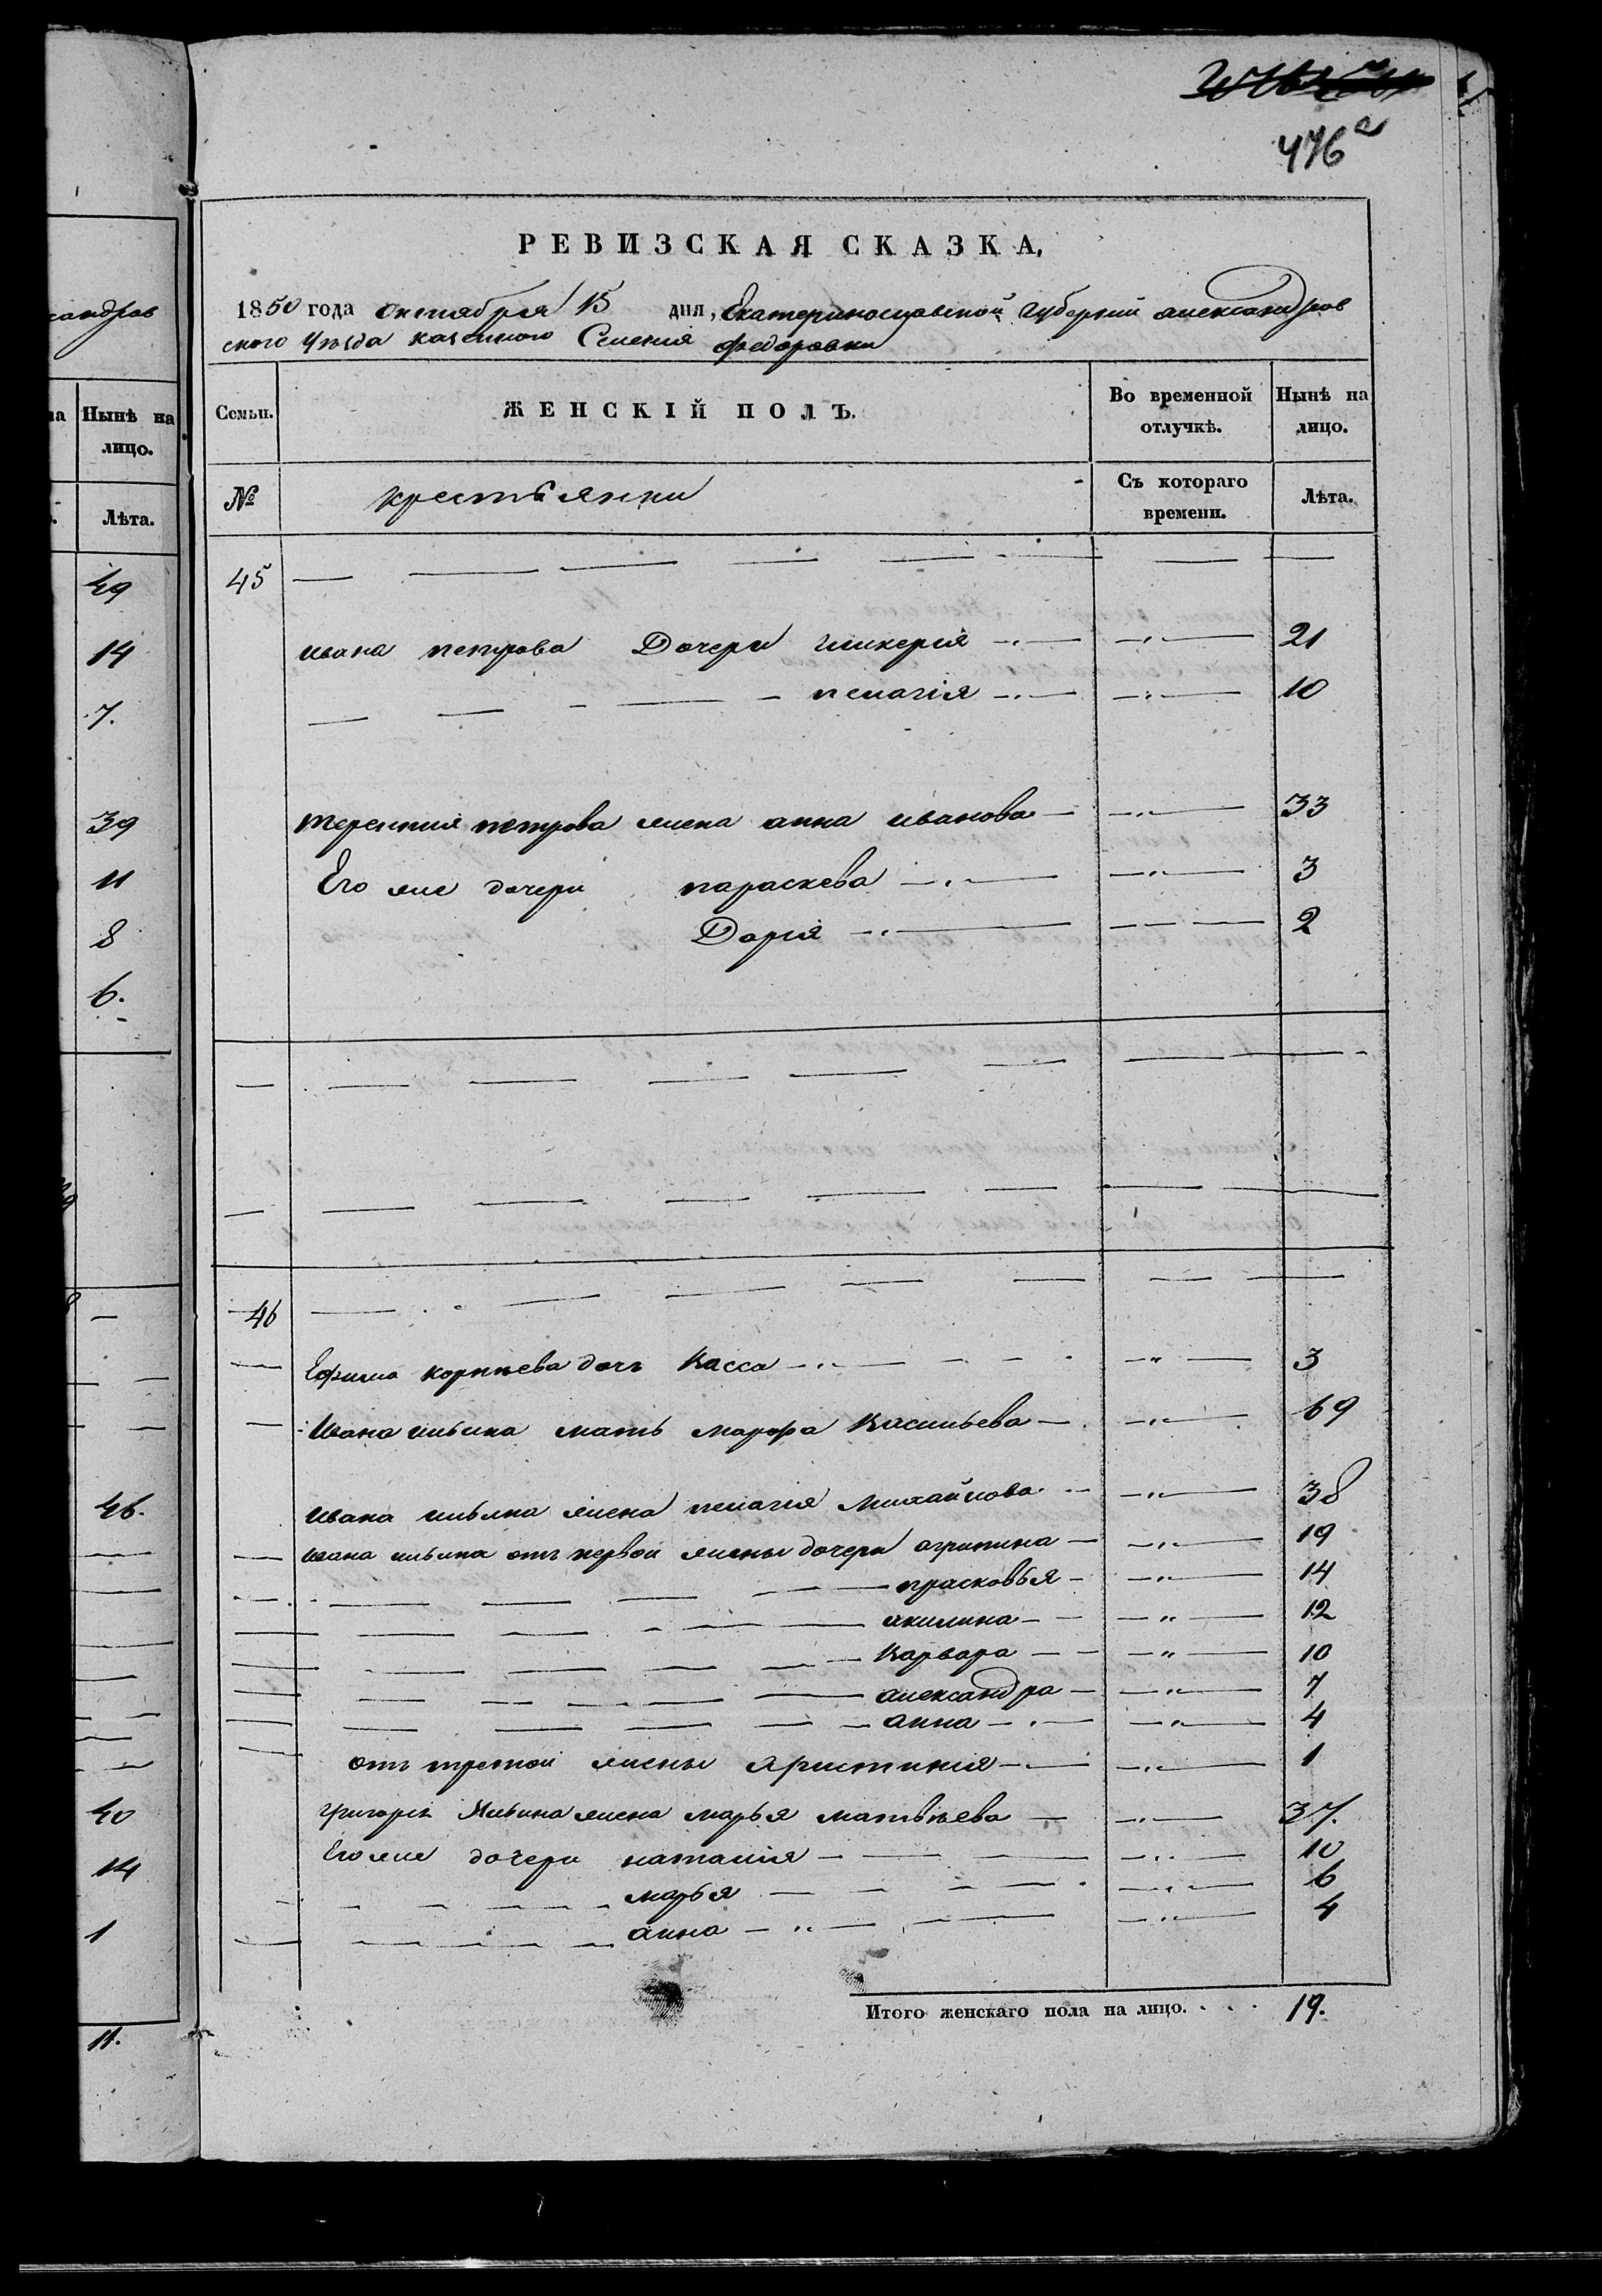 476а
РЕВИЗСКАЯ СКАЗКА,
1850 года октября 15 дня, Екатеринославской губернии александров
ского уѣзда казенного Селения федоровки
Семьи.
ЖЕНСКІЙ ПОЛЪ.
Во временной отлучкѣ.
Нынѣ на лицо.
№
крестьянки
Съ котораго времени.
Лѣта.
45
ивана петрова Дочери гликерия 21
пелагія 10
терентия петрова жена анна иванова 33
Его же дочери параскева 3
Дария 2
46
Ефима корнѣева дочь Васса 3
Ивана ильина мать марфа Васильева 69
ивана ильина жена пелагия михайлова 38
ивана ильина отъ первой жены дочери агрипина 19
прасковья 14
акилина 12
Варвара 10
александра 7
анна 4
отъ третой жены христиния 1
григория Ильина жена марья матвѣева 37.
Его же дочери наталия 10
марья 6
анна 4
Итого женскаго пола на лицо. . . . 19.
сандров
Нынѣ на
лицо.
Лѣта.
49
14
7.
39
11
8
6.
46.
40
14
1
11.